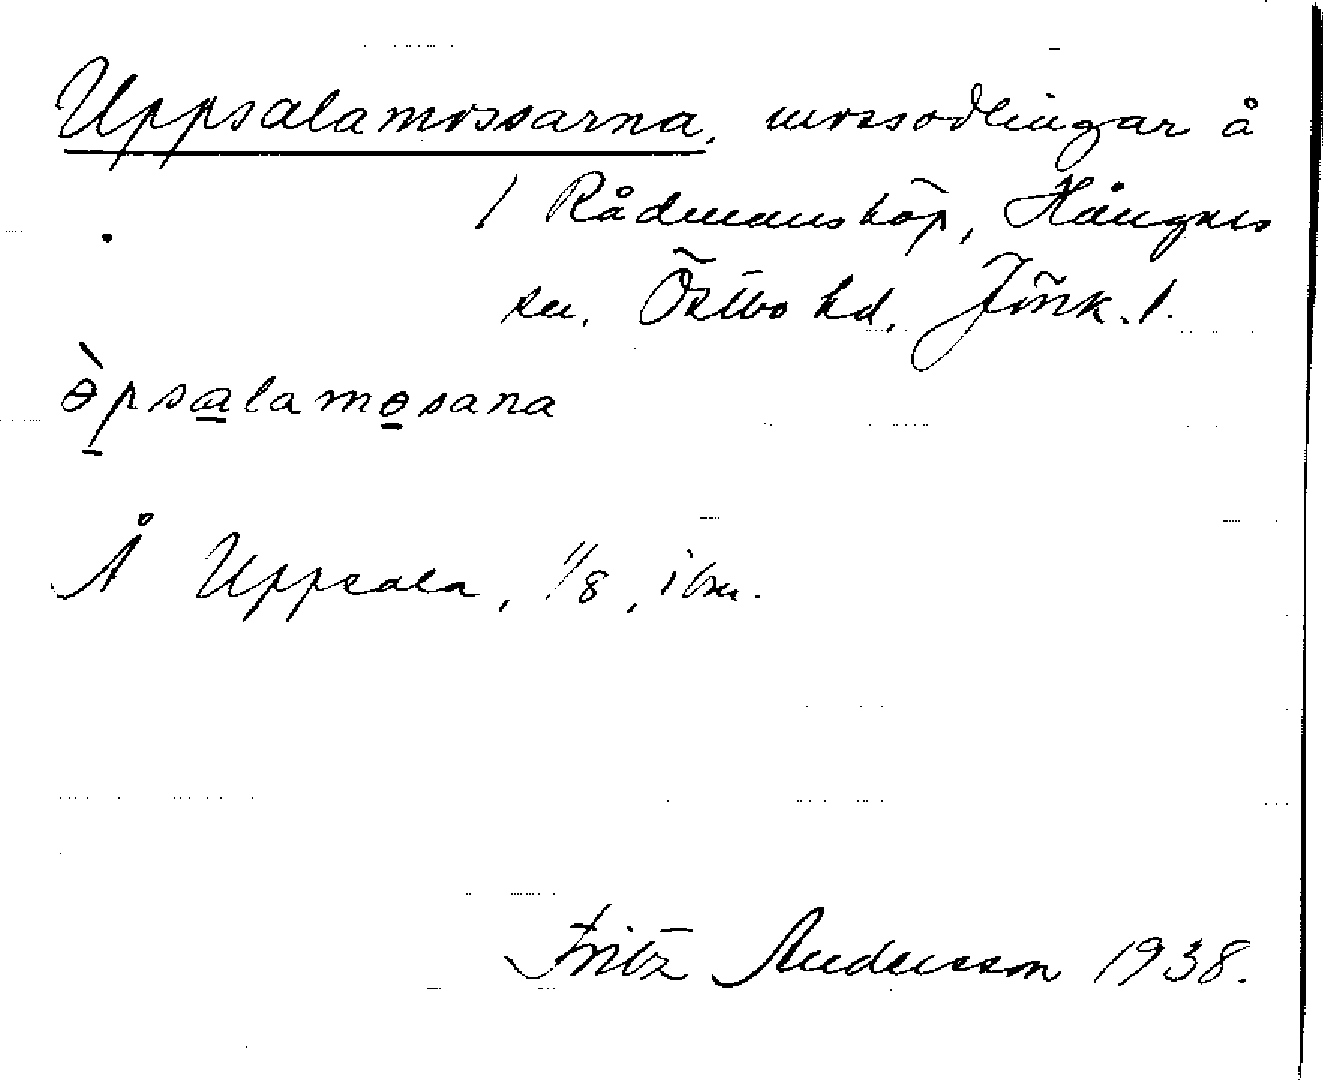 Uppsalamossarna, mossodlingar å
1 Rådmansköp, Hångers
sn. Östbo hd. Jönk. l.
ɵ̀psalamɵsana
Å Uppsala, 1/8, ibm.
Fritz Andersson 1938.